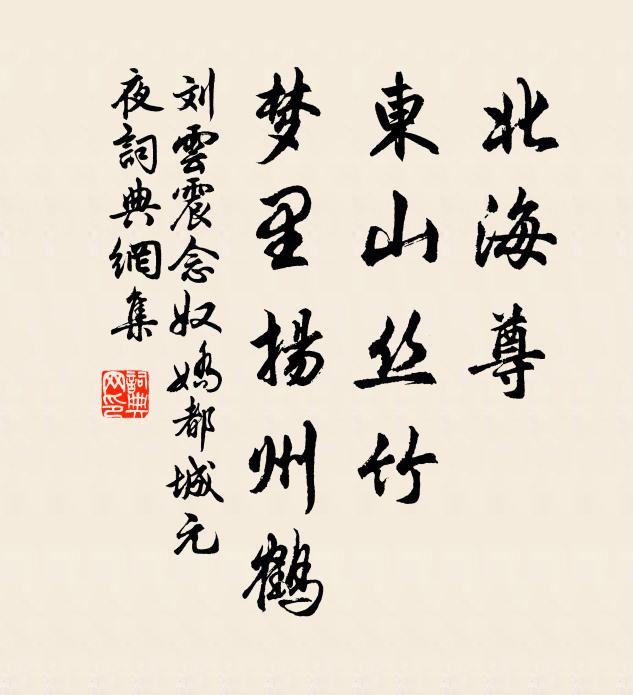 北海尊
東山丝竹
梦里揚州鶴
刘雲震念奴嬌都城元
夜詞典網集
詞典
网印